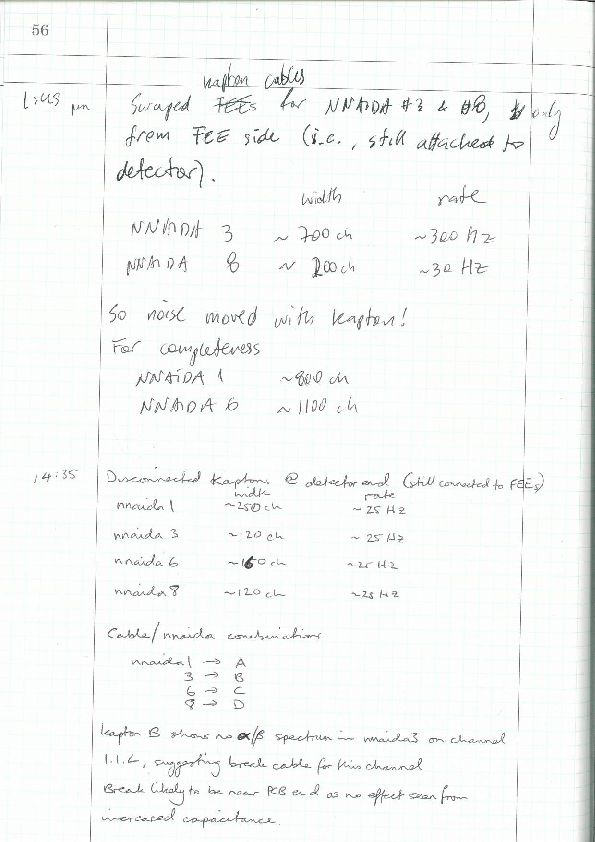 56
kapton cables
1:45 pm Swapped FEEs for NNAIDA #3 & #8, only
from FEE side (i.e., still attached to
detector).
width rate
NNAIDA 3 ~ 700 ch ~300 Hz
NNAIDA 8 ~ 200 ch ~30 Hz
So noise moved with kapton!
For completeness
NNAIDA 1 ~800 ch
NNAIDA 6 ~1100 ch
14:35 Disconnected Kaptons @ detector end (still connected to FEEs)
width rate
nnaida 1 ~250 ch ~25 Hz
nnaida 3 ~ 20 ch ~ 25 Hz
nnaida 6 ~160 ch ~25 Hz
nnaida 8 ~120 ch ~25 Hz
Cable/nnaida combinations
nnaida 1 → A
3 → B
6 → C
8 → D
Kapton B shows no α/β spectrum in nnaida3 on channel
1.1.L, suggesting break cable for this channel
Break likely to be near PCB end as no effect seen from
increased capacitance.